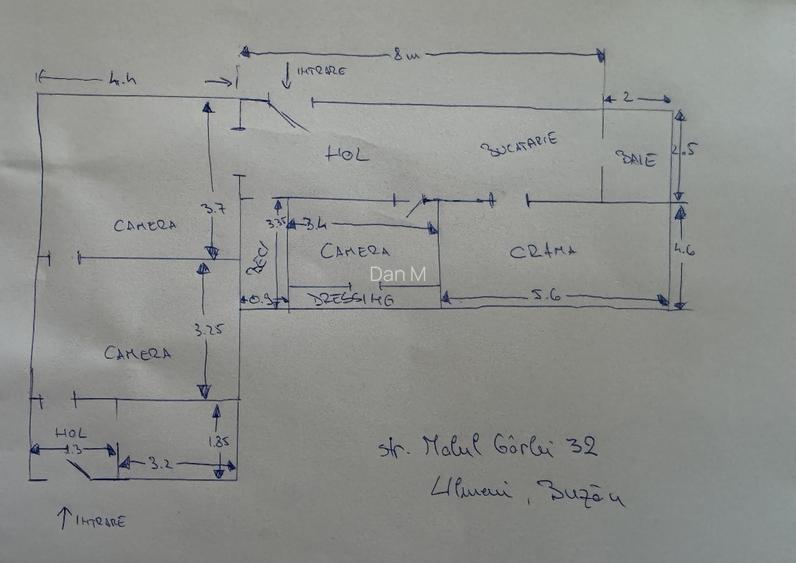 8 m
4.4
INTRARE
2
HOL
BUCATARIE
BAIE
2.5
3.7
CAMERA
3.35
3.4
BECI
CAMERA
CRAMA
4.6
Dan M
0.9
DRESSING
5.6
3.25
CAMERA
HOL
1.3
3.2
1.85
INTRARE
str. Malul Gârlei 32
Ulmeni, Buzău